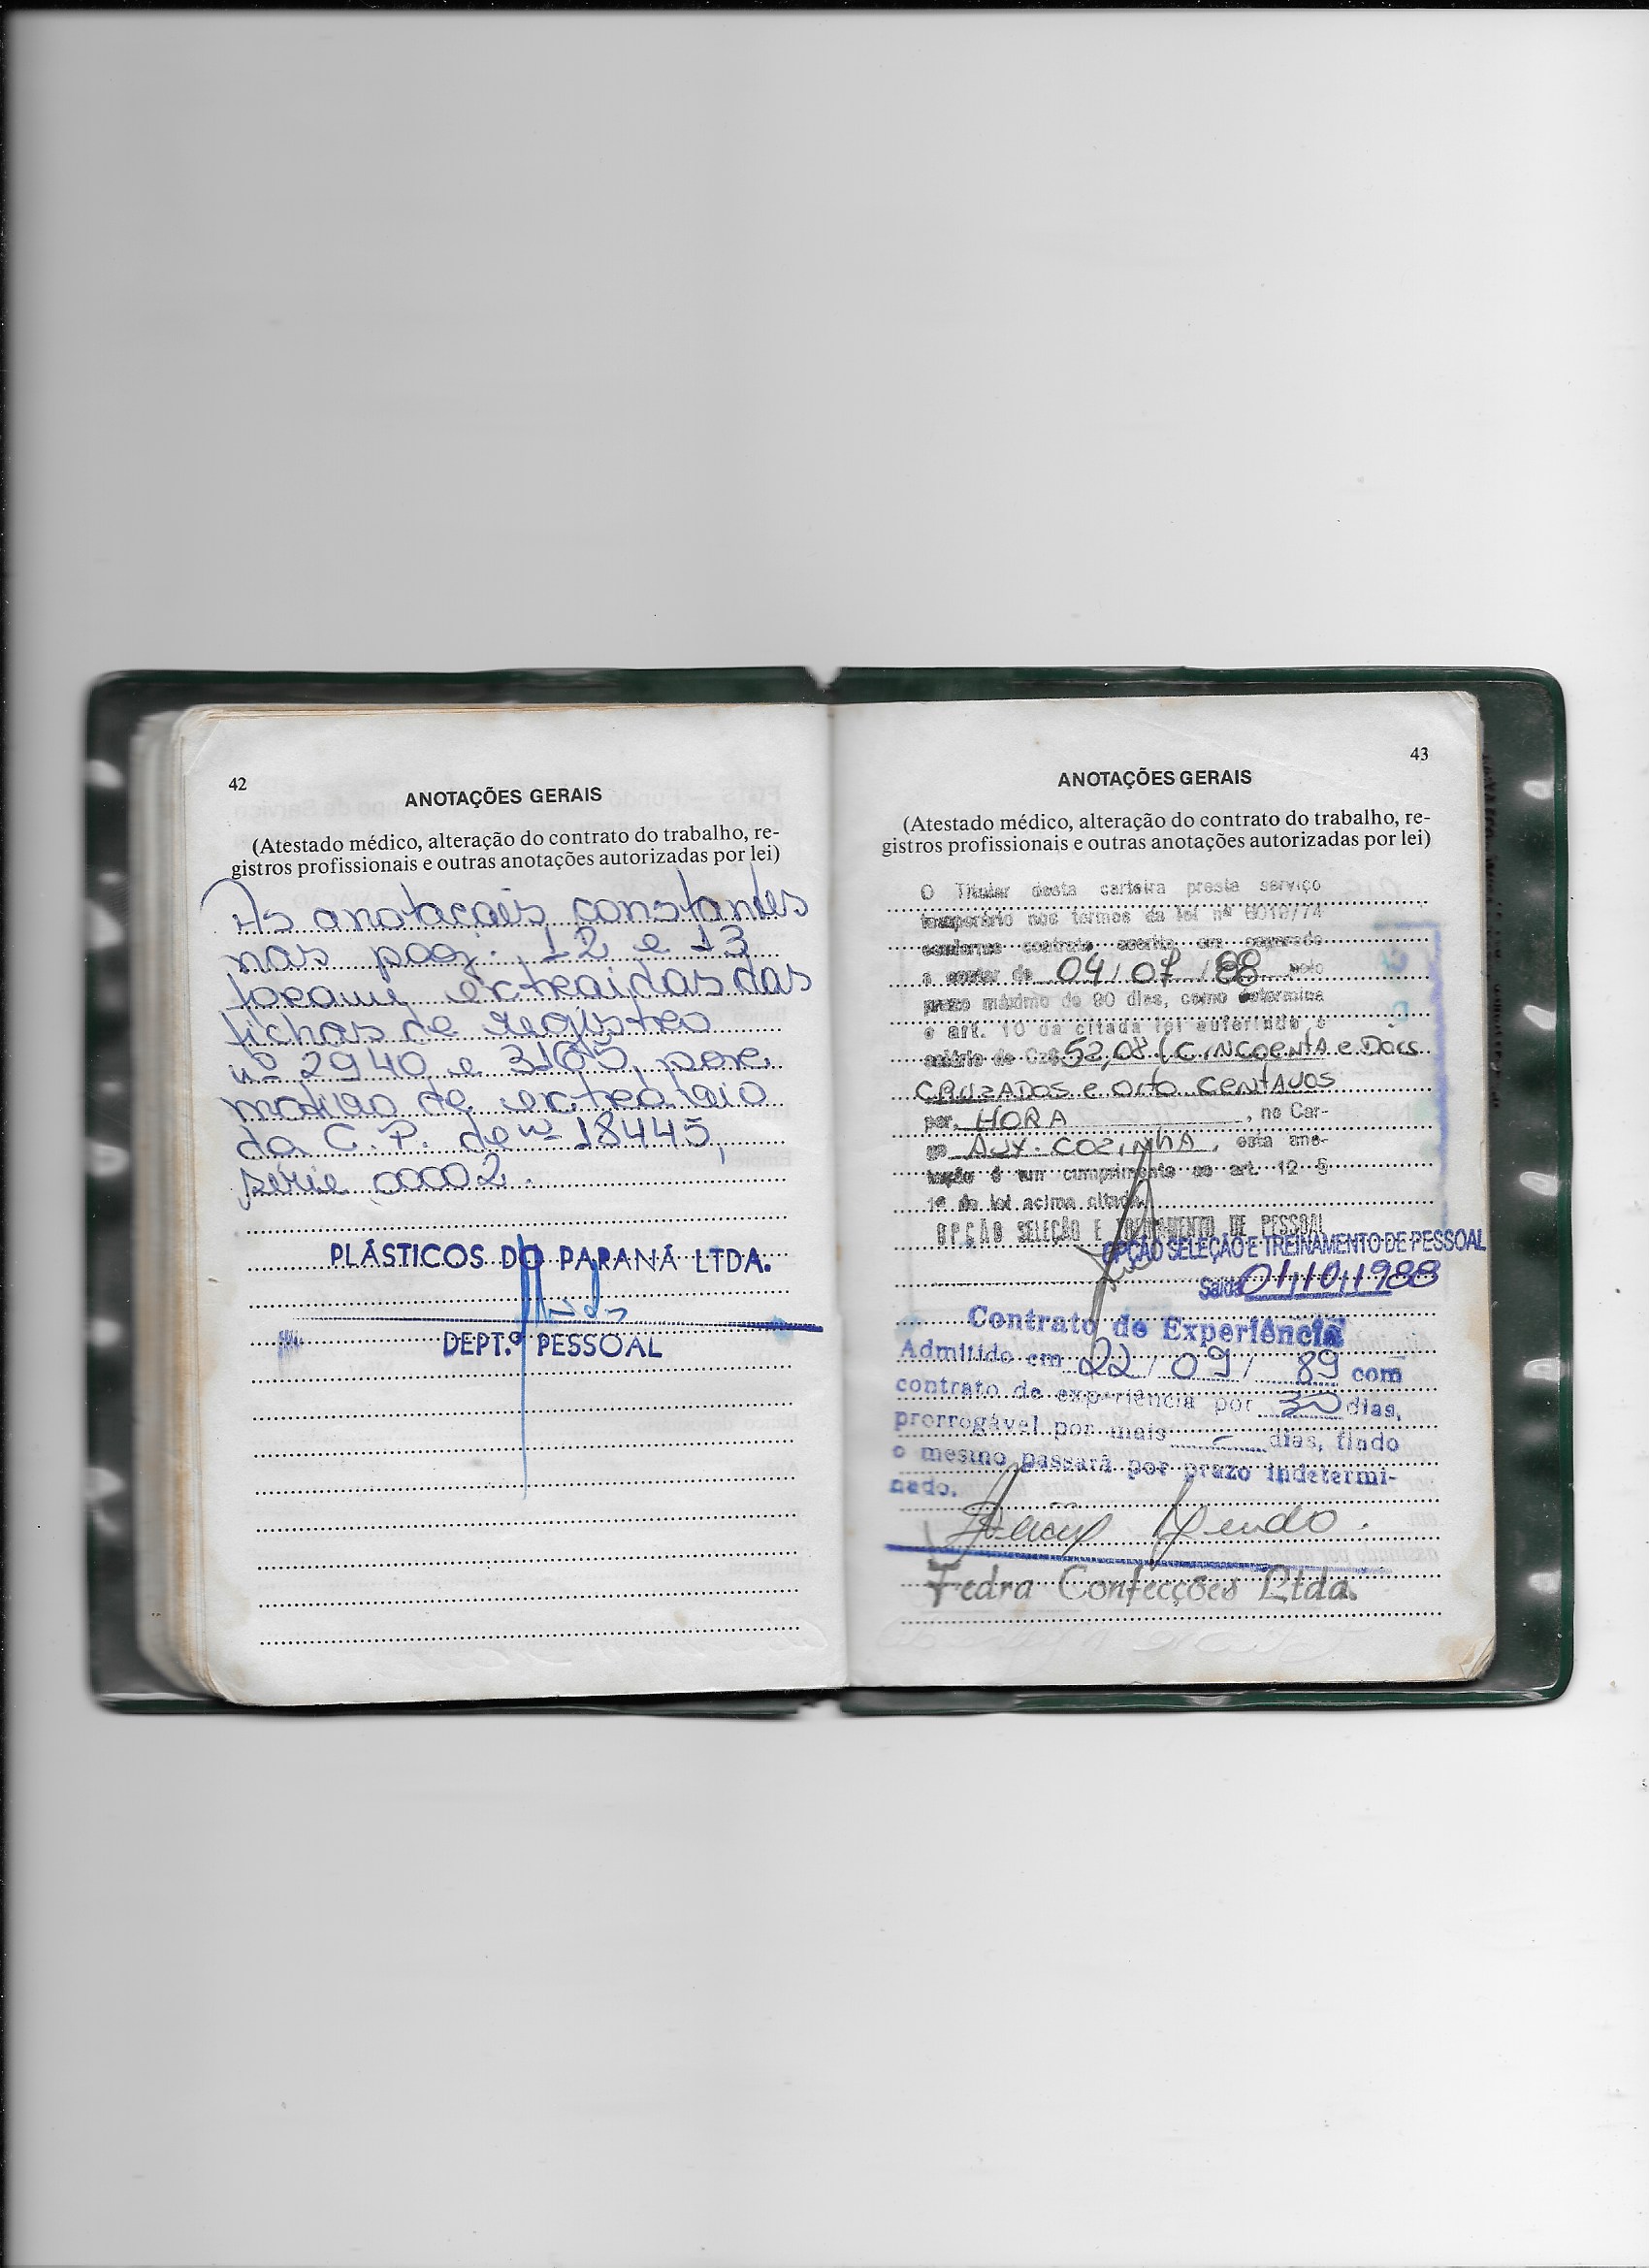 42
ANOTAÇÕES GERAIS
(Atestado médico, alteração do contrato do trabalho, re-
gistros profissionais e outras anotações autorizadas por lei)
As anotaçoes constantes
nas pag. 12 e 13
foram extraidas das
fichas de registro
nº 2940 e 3165, por
motivo de extravio
da C. P. de nº 18445,
série 00002.
PLÁSTICOS DO PARANÁ LTDA.
DEPT.º PESSOAL
43
ANOTAÇÕES GERAIS
(Atestado médico, alteração do contrato do trabalho, re-
gistros profissionais e outras anotações autorizadas por lei)
O Titular desta carteira presta serviço
temporário nos termos da lei nº 6019/74
conforme contrato escrito em separado
a contar de 04/07/88 pelo
prazo máximo de 90 dias, como determina
o art. 10 da citada lei auferindo o
salário de Cz$ 52,08 (CINCOENTA e DOIS
CRUZADOS e OITO CENTAVOS
por HORA, no Car-
go AUX. COZINHA, esta ano-
tação é em cumprimento ao art. 12 §
1º da lei acima citada.
OPÇÃO SELEÇÃO E TREINAMENTO DE PESSOAL
OPÇÃO SELEÇÃO E TREINAMENTO DE PESSOAL
Saída 01/10/1988
Contrato de Experiência
Admitido em 22/09/89 com
contrato de experiência por 30 dias,
prorrogável por mais - dias, findo
o mesmo passará por prazo indetermi-
nado.
Fedra Confecções Ltda.